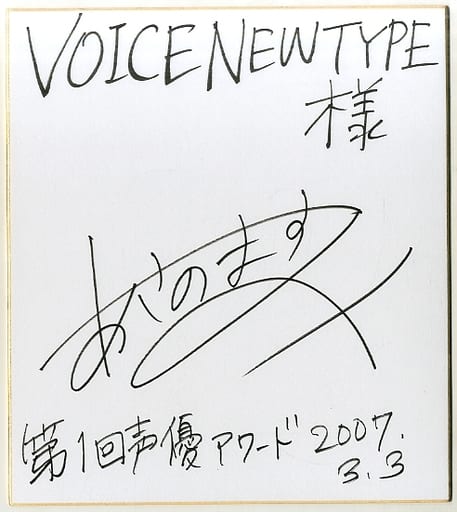 VOICE NEWTYPE
様
あさのます
第1回声優アワード 2007.
3.3